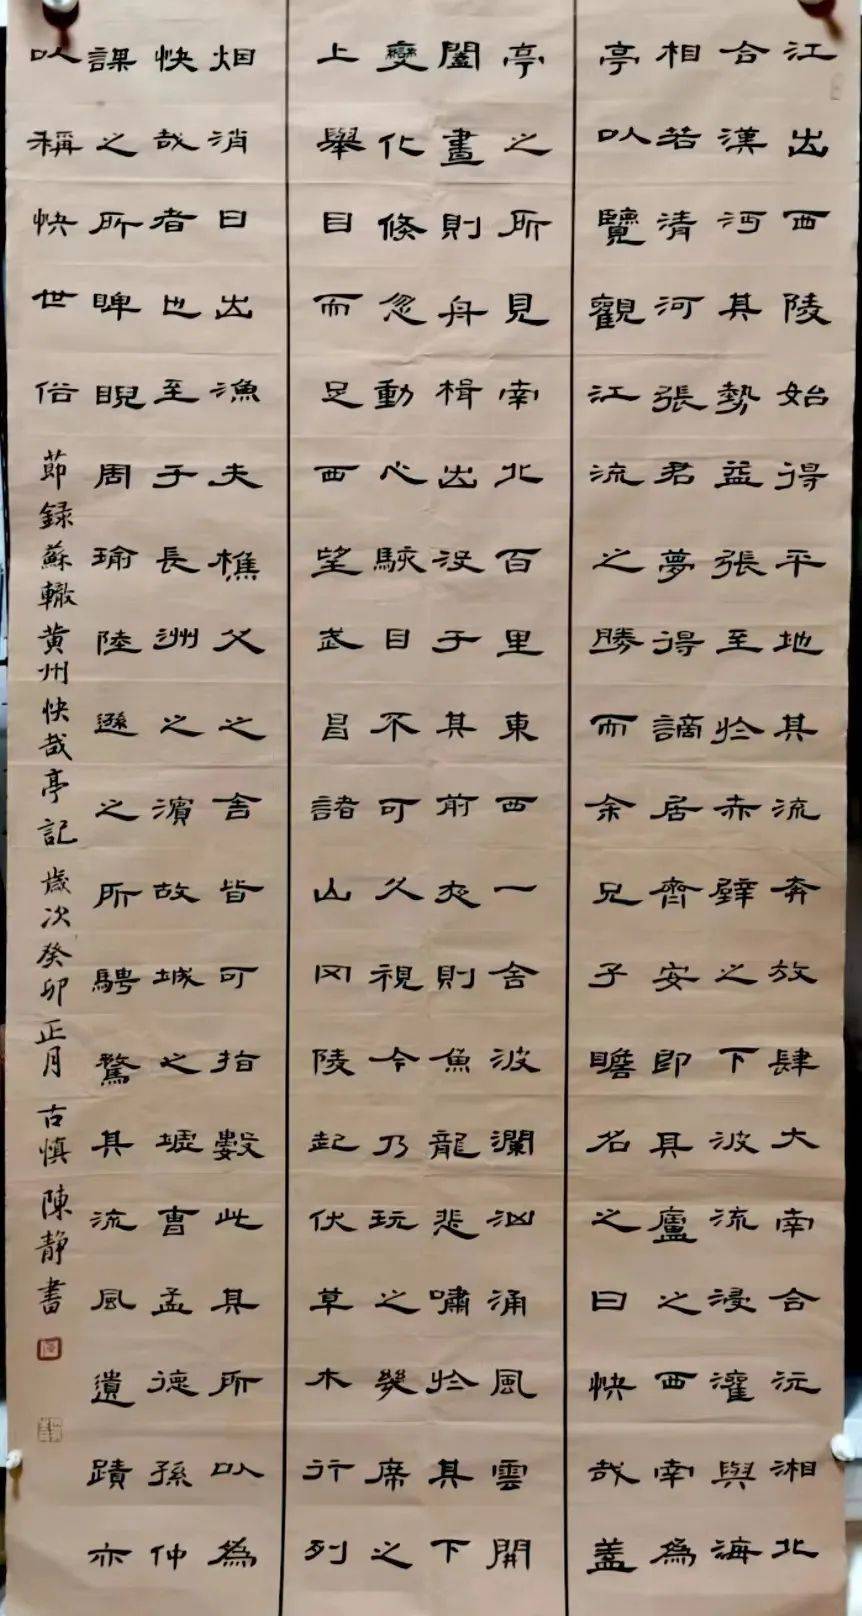 江出西陵始得平地其流奔放肆大南合沅湘北
合漢沔其勢益張至於赤壁之下波流浸灌與海
相若清河張君夢得謫居齊安即其廬之西南為
亭以覽觀江流之勝而余兄子瞻名之曰快哉蓋
亭之所見南北百里東西一舍波瀾汹涌風雲開
闔晝則舟楫出没于其前夜則魚龍悲嘯於其下
變化倏忽動心駭目不可久視今乃玩之幾席之
上舉目而足西望武昌諸山冈陵起伏草木行列
烟消日出漁夫樵父之舍皆可指數此其所以為
快哉者也至于長洲之濱故城之墟曹孟德孫仲
謀之所睥睨周瑜陸遜之所騁騖其流風遺蹟亦
以稱快世俗
節録蘇轍黄州快哉亭記歲次癸卯正月古慎陳静書